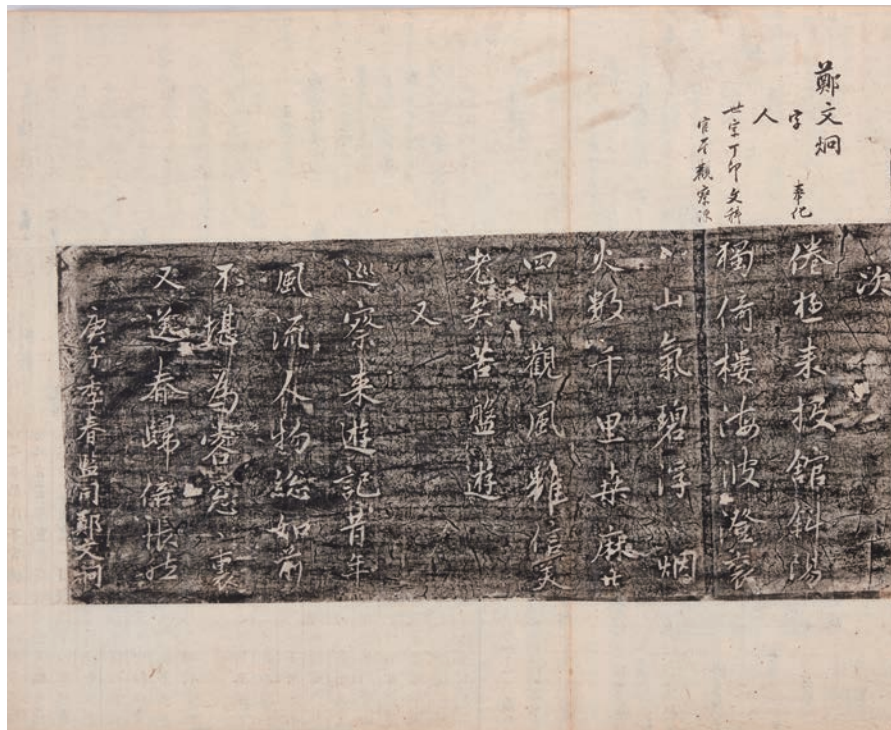 鄭文炯
字 奉化
人
世宗丁卯文科
官至觀察使
次
倦極来投館斜陽
獨倚樓海波澄衮
〻山氣碧浮〻烟
火數千里桒麻廿
四州觀風雖信美
老矣苦盤遊
又
巡察来遊記昔年
風流人物総如前
不堪為客忩〻裏
又送春歸倍悵然
庚子季春監司鄭文炯